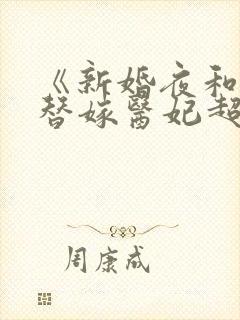 《新婚夜和
替嫁醫妃超
周康成